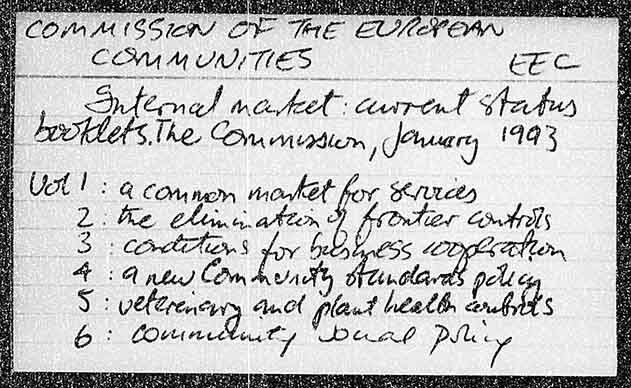 COMMISSION OF THE EUROPEAN
COMMUNITIES EEC
Internal market: current status
booklets. The Commission, January 1993
Vol 1 : a common market for services
2 : the elimination of frontier controls
3 : conditions for business cooperation
4 : a new Community standards policy
5 : veterinary and plant health controls
6 : community social policy